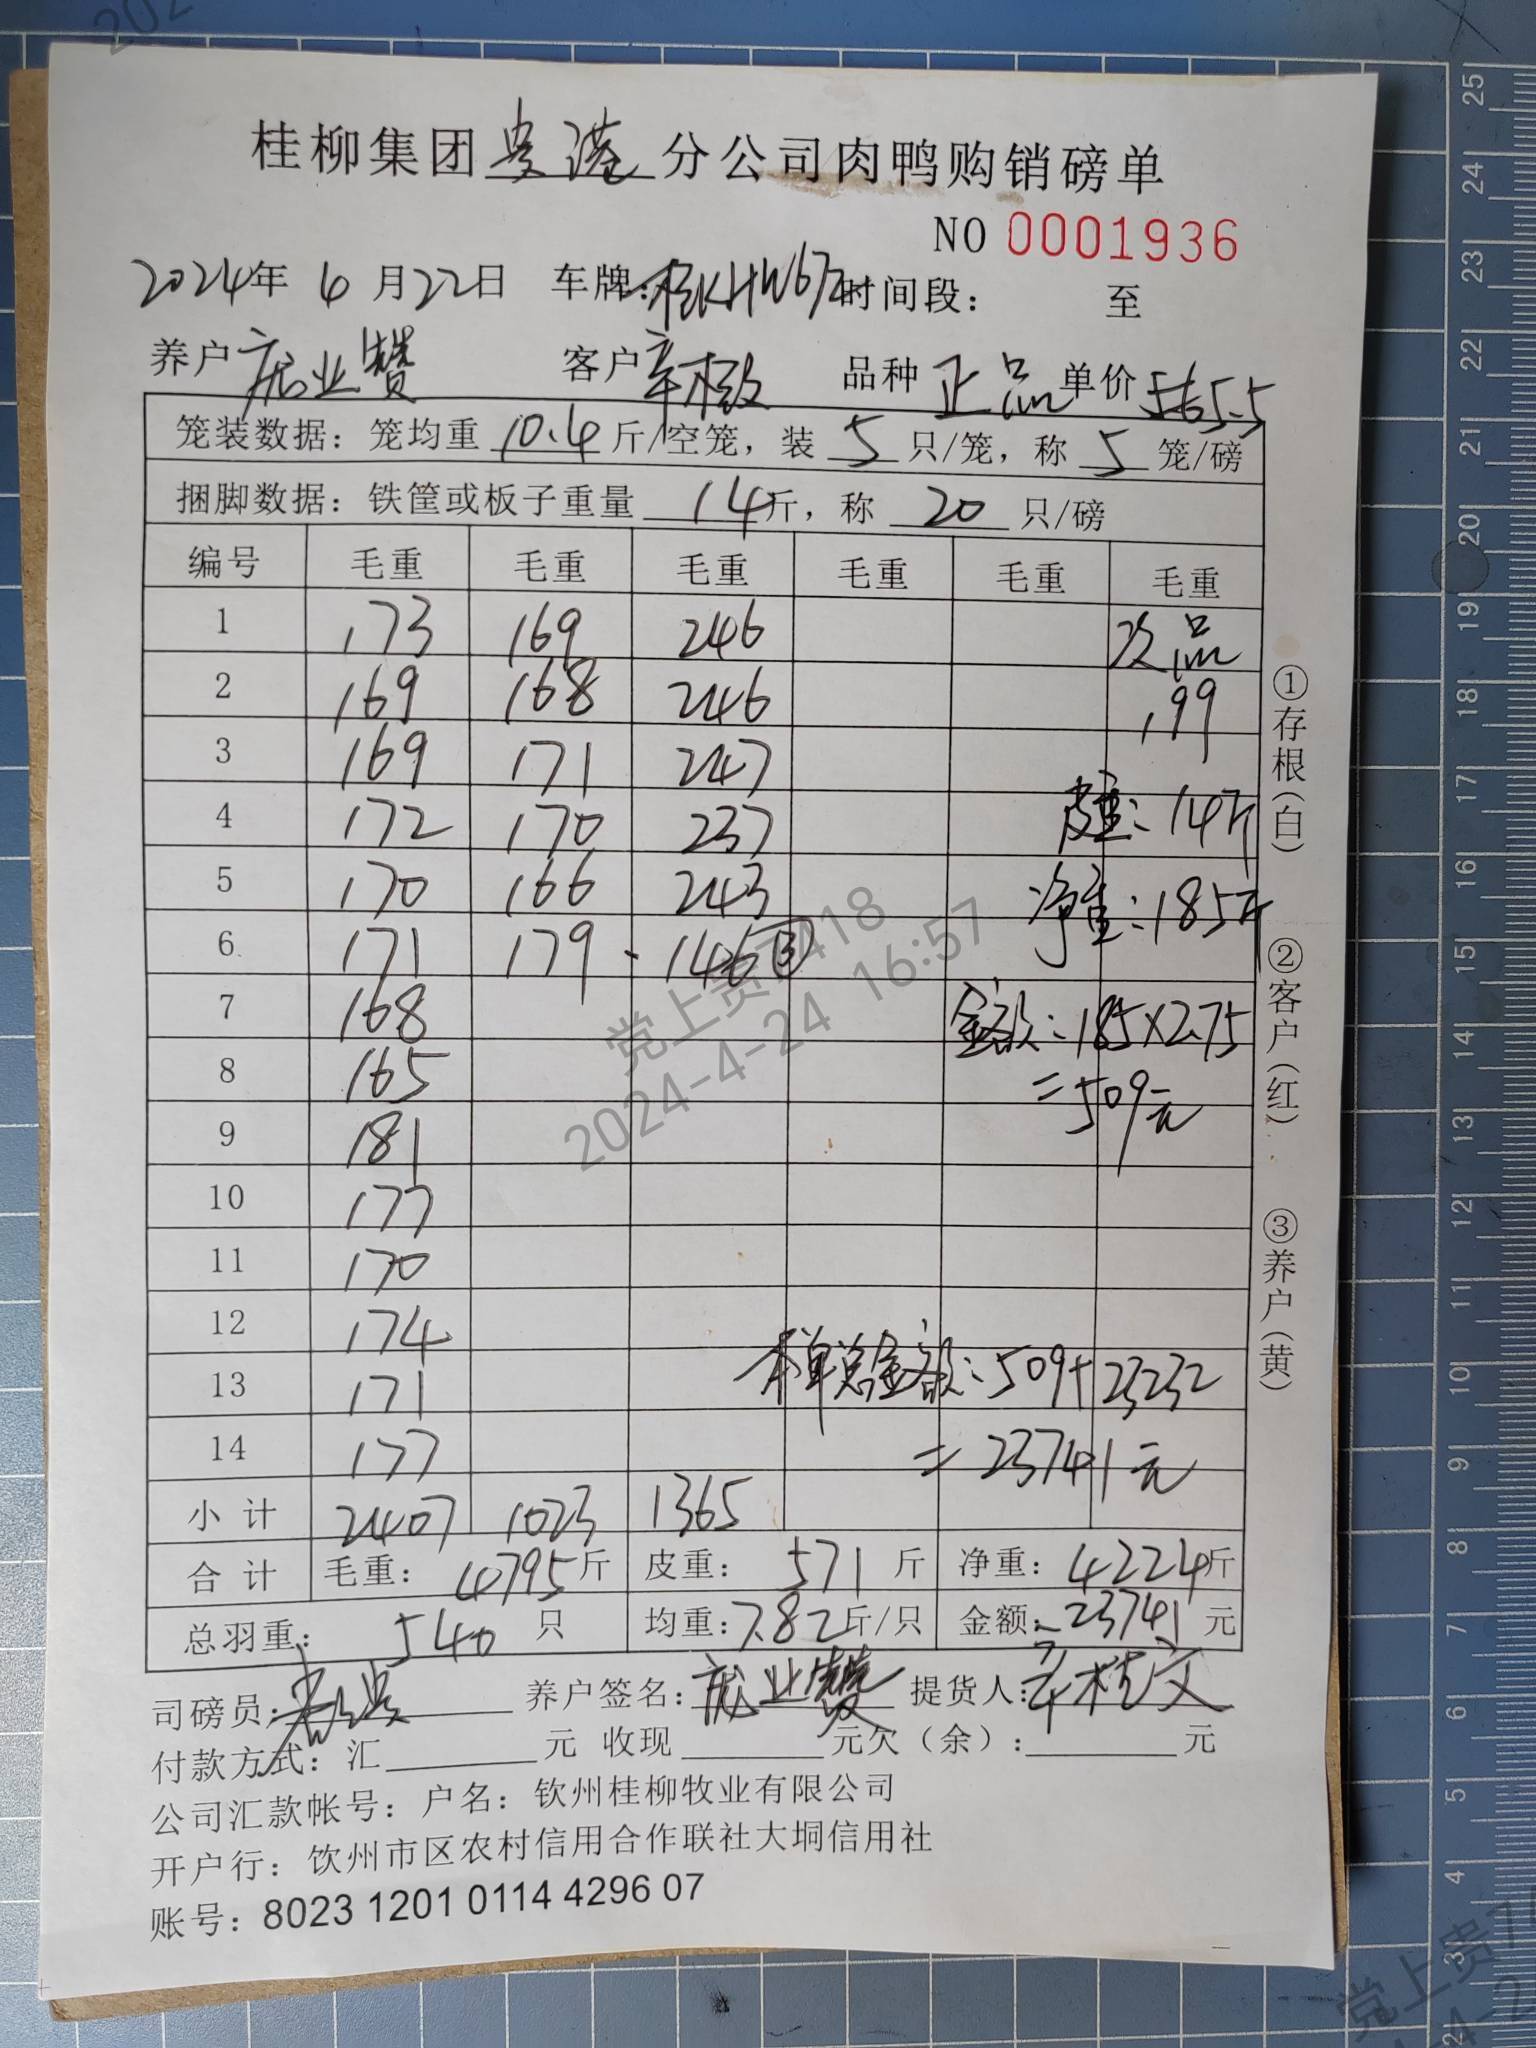 桂柳集团贵港分公司肉鸭购销磅单
NO 0001936
2024年 4月22日 车牌: 时间段: 至
养户 庞业赞 客户 品种 正品 单价 5.5
笼装数据: 笼均重 10.4 斤/空笼, 装 5 只/笼, 称 5 笼/磅
捆脚数据: 铁筐或板子重量 14斤, 称 20 只/磅
编号 毛重 毛重 毛重 毛重 毛重 毛重
1 173 169 246 次品
2 169 168 246 199
3 169 171 247
4 172 170 237 皮重: 14斤
5 170 166 243 净重: 185斤
6 171 179 146 ③
7 168 金额: 185×2.75
8 165 =509元
9 181
10 177
11 170
12 174
13 171 本单总金额: 509+23232
14 177 =23741元
小计 2407 1023 1365
合计 毛重: 4795斤 皮重: 571 斤 净重: 4224斤
总羽重: 540 只 均重: 7.82斤/只 金额: 23741 元
司磅员: 养户签名: 庞业赞 提货人: 辛桂文
付款方式: 汇 元 收现 元欠(余): 元
公司汇款帐号: 户名: 钦州桂柳牧业有限公司
开户行: 钦州市区农村信用合作联社大垌信用社
账号: 8023 1201 0114 4296 07
①存根(白)
②客户(红)
③养户(黄)
党上贵7418
2024-4-24 16:57
25
24
23
22
21
20
19
18
17
16
15
14
13
12
11
10
9
8
7
6
5
4
3
2